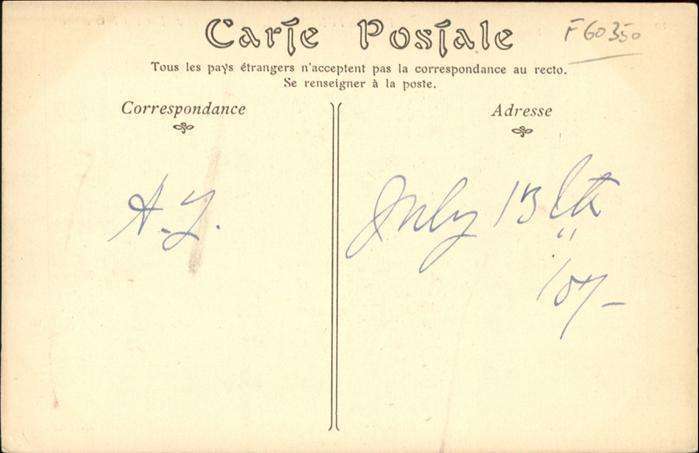 Carte Postale
F60350
Tous les pays étrangers n'acceptent pas la correspondance au recto.
Se renseigner à la poste.
Correspondance
Adresse
July 13th
'07-